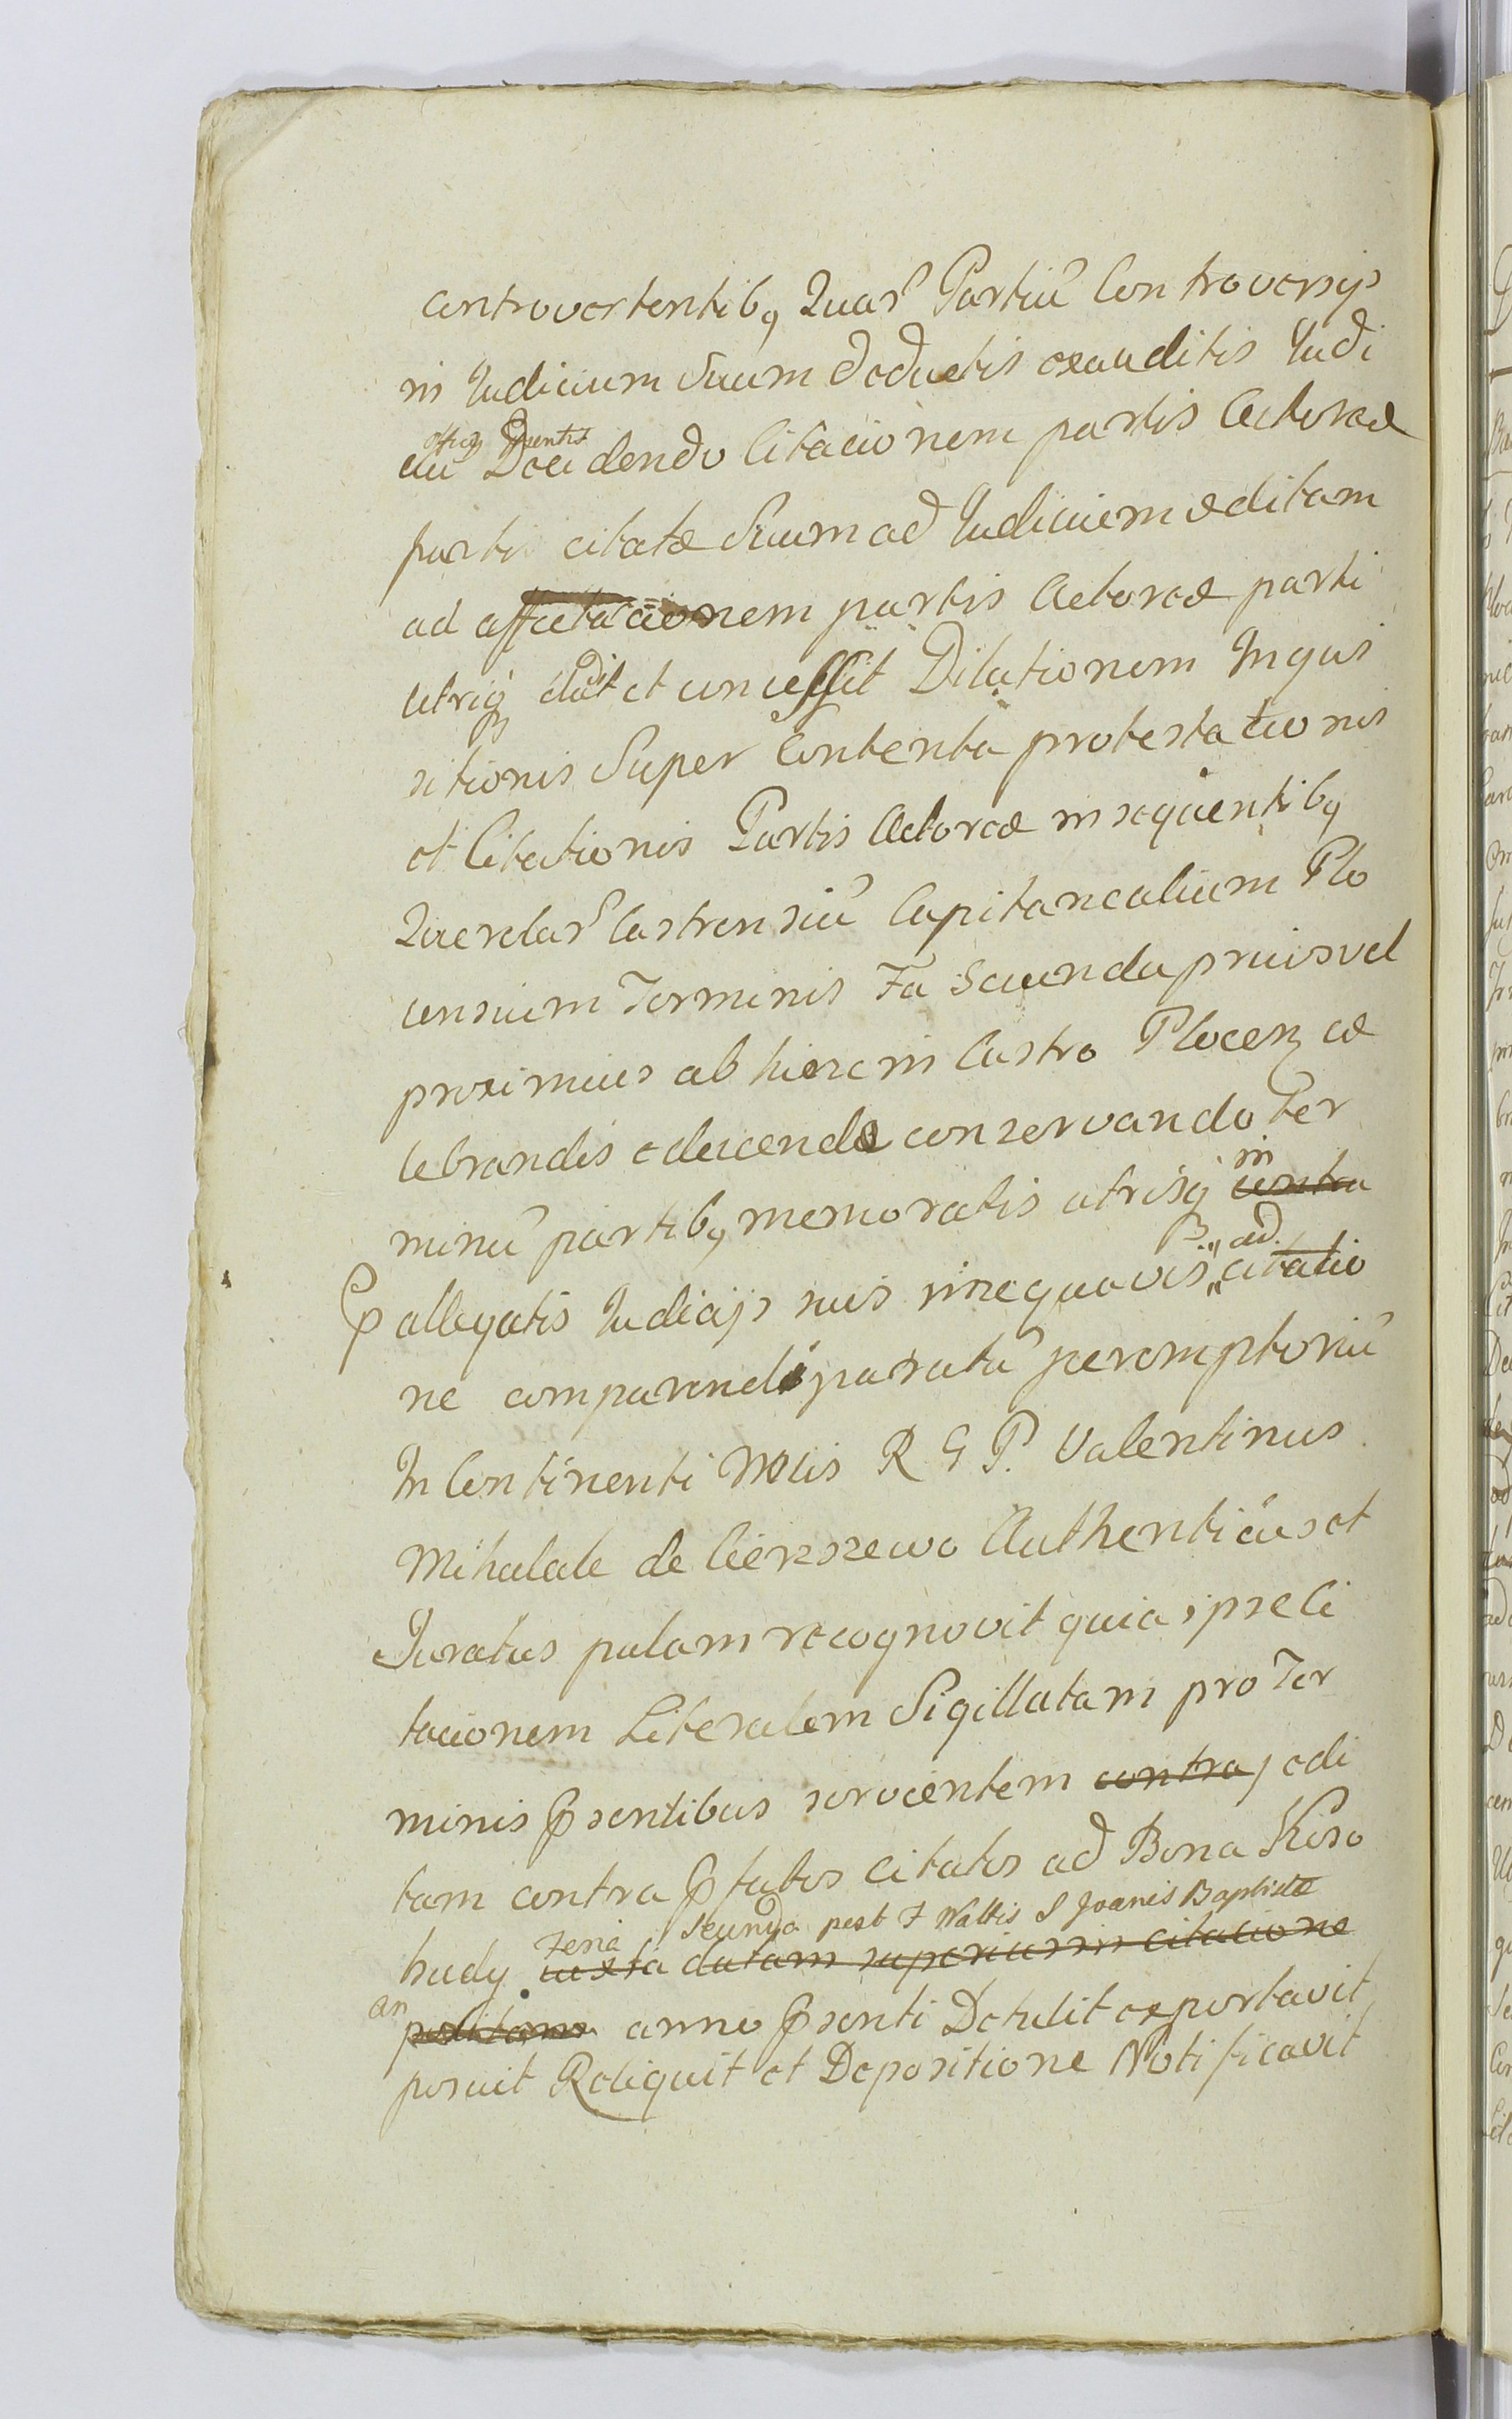 controvertentibq Quar Partiu Controversijs
in Judicium Suum deductis exauditis Judi
offiy Prntis
ciu Decidendo Citacionem partis Actoreæ
parti citatæ Suum ad Judicium editam
ad affectacionem partis Actoreæ parti
utriq dedit et concessit Dilationem Inqui
sitionis Super Contenta protestationis
et Citationis Partis Actoreæ insequentibq
Querelar Castrensiu Capitanealium Plo
censium Terminis Fa Secunda prius vel
proximius ab hinc in Castro Plocen ce
lebrandis educenda conservando Ter
in
minu partibq memoratis utrisq contra
ad
P allegatis Judicijs suis sine quavis citatio
ne comparendi paratu peremptoriu
In Continenti Mtis R G P. Valentinus
Mihalak de Cierszewo Authenticus et
Juratus palam recognovit quia ipse Ci
tacionem Literalem Sigillatam pro Ter
minis Psentibus servientem contra edi
tam contra Pfatos citatos ad Bona Koso
Feria Secunda post F Nattis S Joanis Baptistæ
budy iuxta datam superius in citacione
an
positam anno Psenti Detulit exportavit
posuit Reliquit et Depositione Notificavit